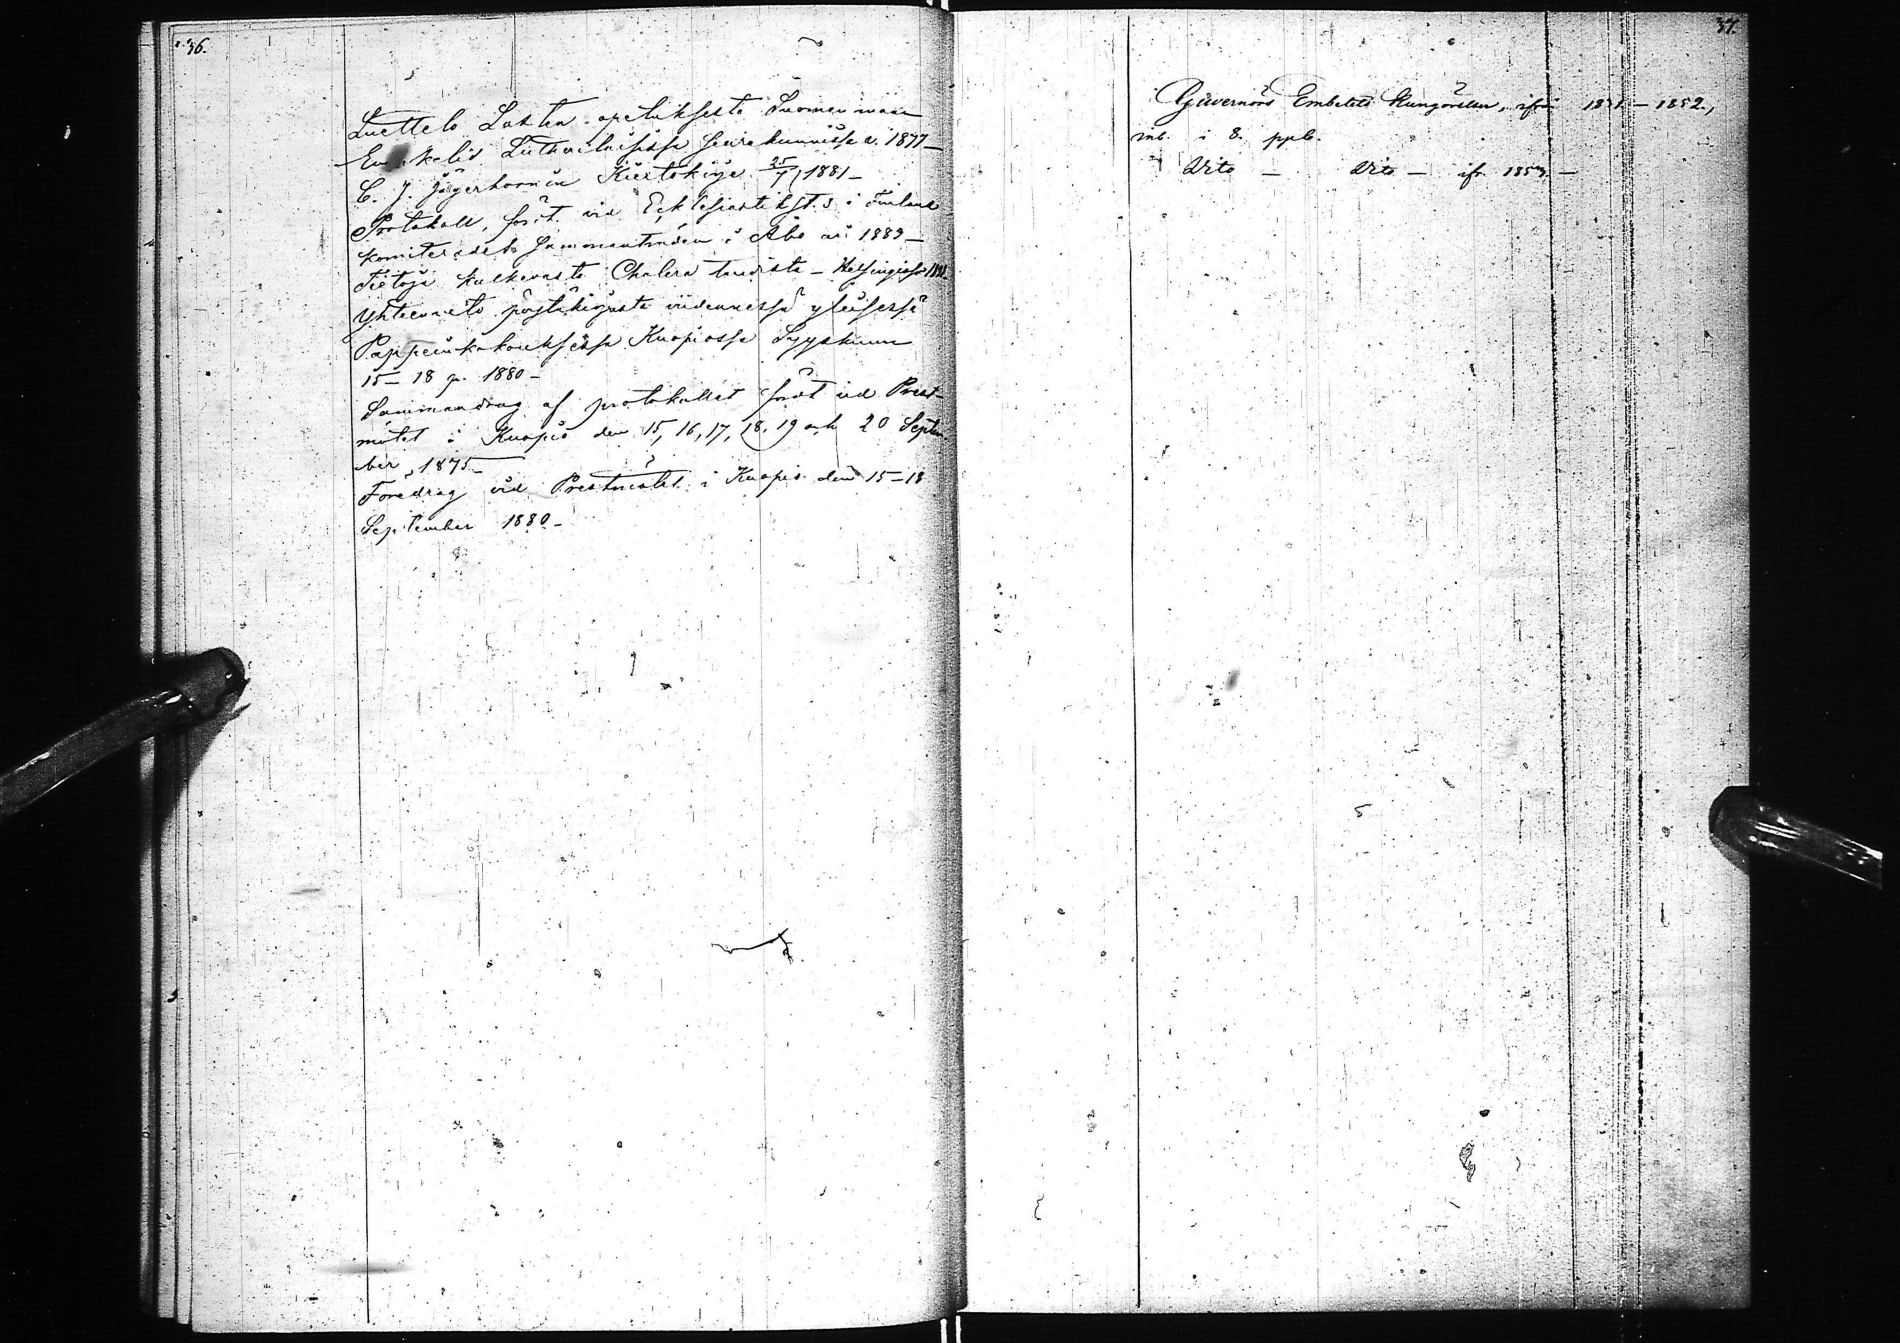 36.
Luettelo Lasten opetuksesta Suomenmaan
Evankelis Lutherilaisissa seurakunnissa v. 1877 —
C. J. Jägerhornin Kiertokirje 25/7 1881 —
Protokoll, fört vid Ecklesiastikst. i Finland
komiterades sammanträden i Åbo år 1883 —
Tietoja kulkevasta Cholera taudista — Helsingissä
Yhteenveto pöytäkirjasta viidennessä yleisessä
Pappeinkokouksessa Kuopiossa Syyskuun
15 — 18 p. 1880 —
Sammandrag af protokollet fördt vid Prest-
mötet i Kuopio den 15, 16, 17, 18, 19 och 20 Septem-
ber, 1875 —
Föredrag vid Prestmötet i Kuopio den 15 — 18
September 1880 —
37.
Guvernörs Embetets Kungörelser, ifrån 1831 — 1852,
inb. i 8. ppb.
Dito — Dito — ifr. 1853 —